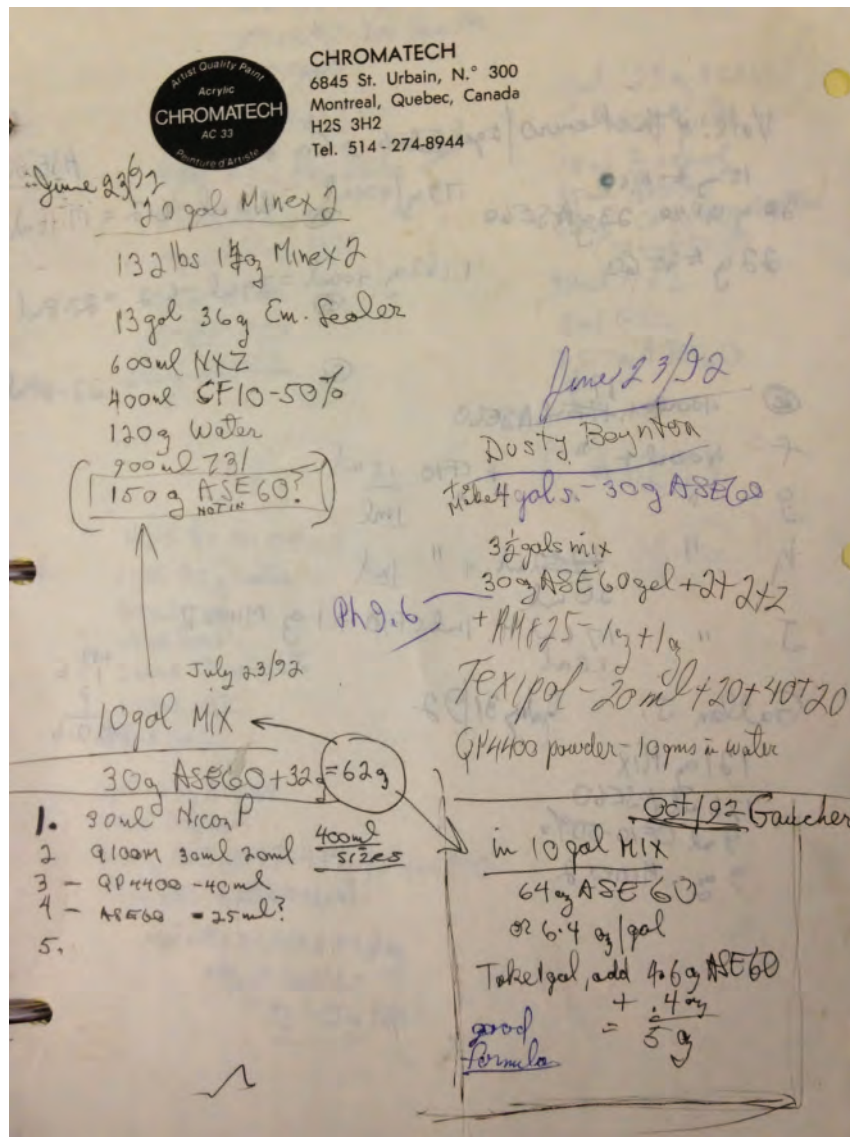 Artist Quality Paint
Acrylic
CHROMATECH
AC 33
Peinture d'Artiste
CHROMATECH
6845 St. Urbain, N.° 300
Montreal, Quebec, Canada
H2S 3H2
Tel. 514-274-8944
June 23/92
20 gal Minex 2
132 lbs oz Minex 2
13 gal 36 oz Em. Sealer
600 ml NXZ
400 ml CF10-50%
120 oz Water
900 ml 731
150 oz ASE 60?
NOT IN
July 23/92
10 gal MIX
30 oz ASE60 + 32 oz = 62 oz
1. 30 ml P
2 30ml 20ml
400ml
sizes
3 - QP4400 - 40ml
4 - ASE60 - 25ml?
5.
June 23/92
Dusty Boynton
to make 4 gals. - 30 oz ASE60
3 1/2 gals mix
30 oz ASE60 gel + 2 + 2 + 2
Ph 9.6
+ - 1 oz + 1 oz
Texipol - 20 ml + 20 + 40 + 20
QP4400 powder - 10 gms in water
Oct/92 Gaucher
in 10 gal MIX
64 oz ASE 60
or 6.4 oz/gal
Take 1 gal, add 4.6 oz ASE60
+ .4 oz
= 5 oz
good
formula